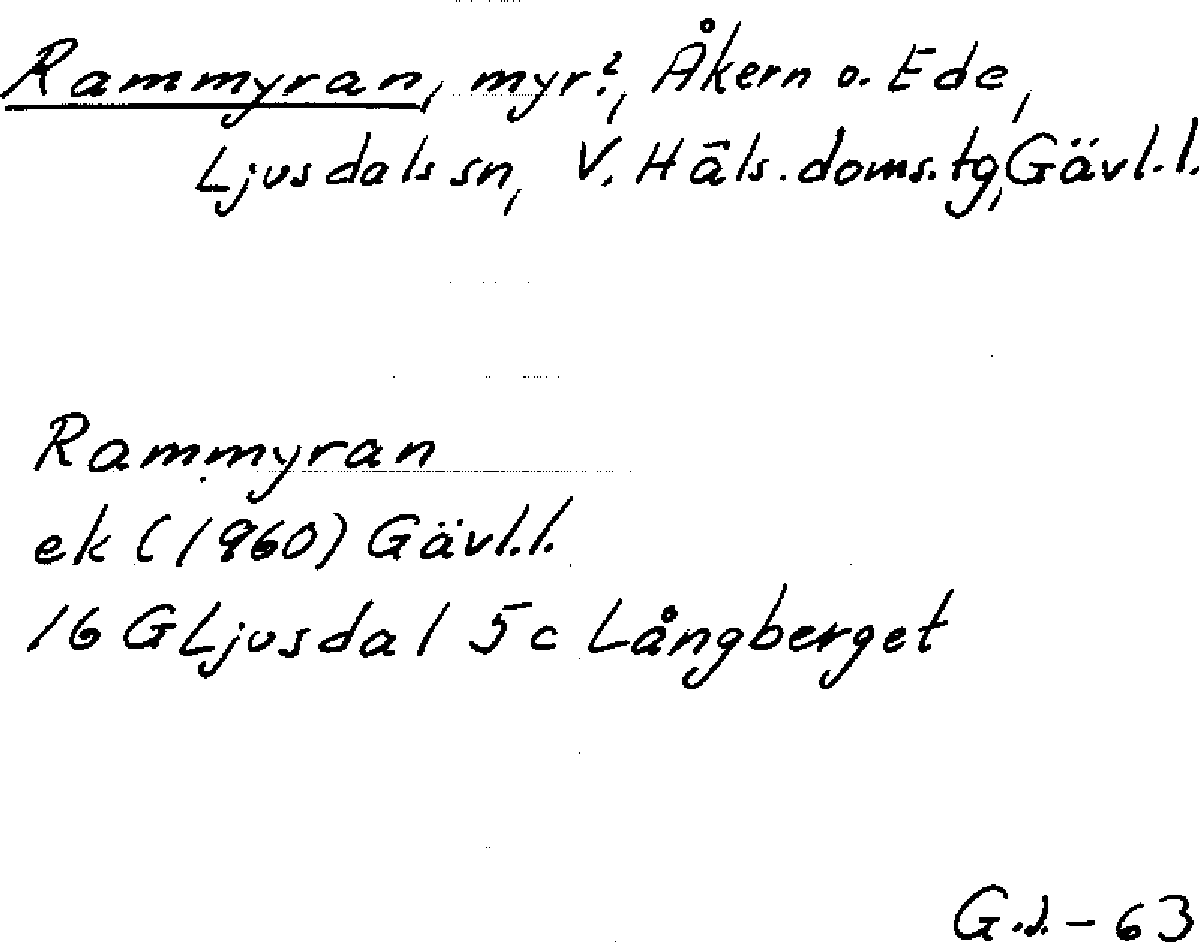 Rammyran, myr?, Åkern o. Ede,
Ljusdals sn, V. Häls. doms. tg, Gävl. l.
Rammyran
ek (1960) Gävl. l.
16 G Ljusdal 5 c Långberget
G. J. - 63